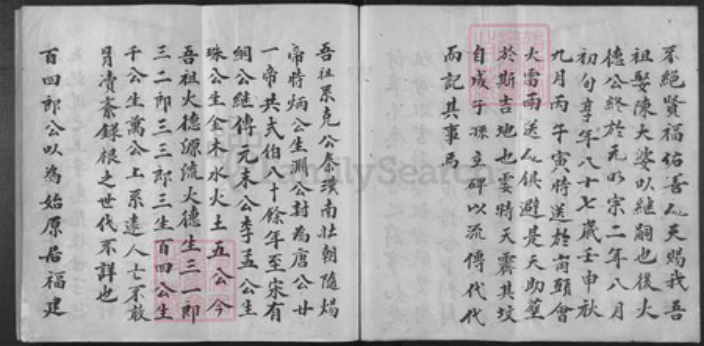 不絕賢福佑善人天賜我吾
祖娶陳大婆以継嗣也後火
德公終於元明宗二年八月
初旬享年八十七歲壬申秋
九月丙午寅時送於崗頭會
大雷雨送人俱避是天助塟
於斯吉地也霎時天霽其坟
自成子孫立碑以流傳代代
而記其事焉
吾祖系克公秦漢南北朝隨煬
帝時炳公生淵公封為唐公廿
一帝共弍伯八十餘年至宋有
綱公継傳元末公李孟公生
珠公生金木水火土五公今
吾祖火德源流火德生三一郎
三二郎三三郎三三生百四公生
千公生萬公上系遠人亡不敢
冐瀆紊錄根之世代不詳也
百四郎公以為始原居福建
FamilySearch